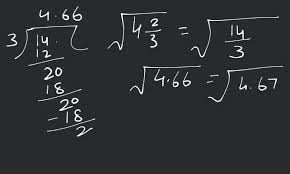 4.66
3 √14.
12
20
18
20
-18
2
√4 2/3 = √14/3
√4.66 = √4.67